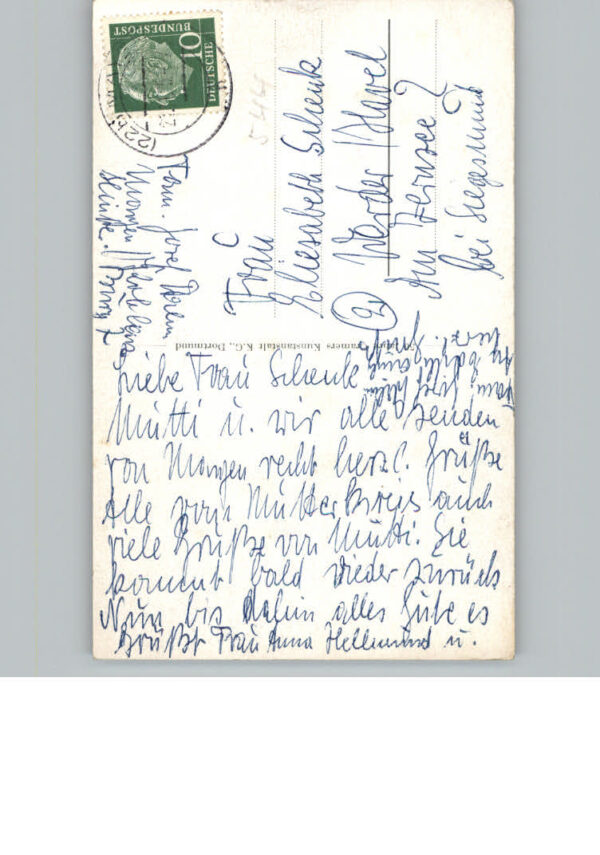 DEUTSCHE
BUNDESPOST
10
(22b)
544
Fam. Josef
Mayen
Frau
Elisabeth Schenk
Werder / Havel
Am Zernsee 2
bei Siegesmund
Cramers Kunstanstalt K.G., Dortmund
Liebe Frau Schenk
Mutti u. wir alle senden
von Mayen recht herzl. Grüße
Alle vom Mutterkreis auch
viele Grüße von Mutti. Sie
kommt bald wieder zurück
Nun bis dahin alles Gute es
grüßt Frau Anna Hellmund u.
Fam. Josef
herzl.